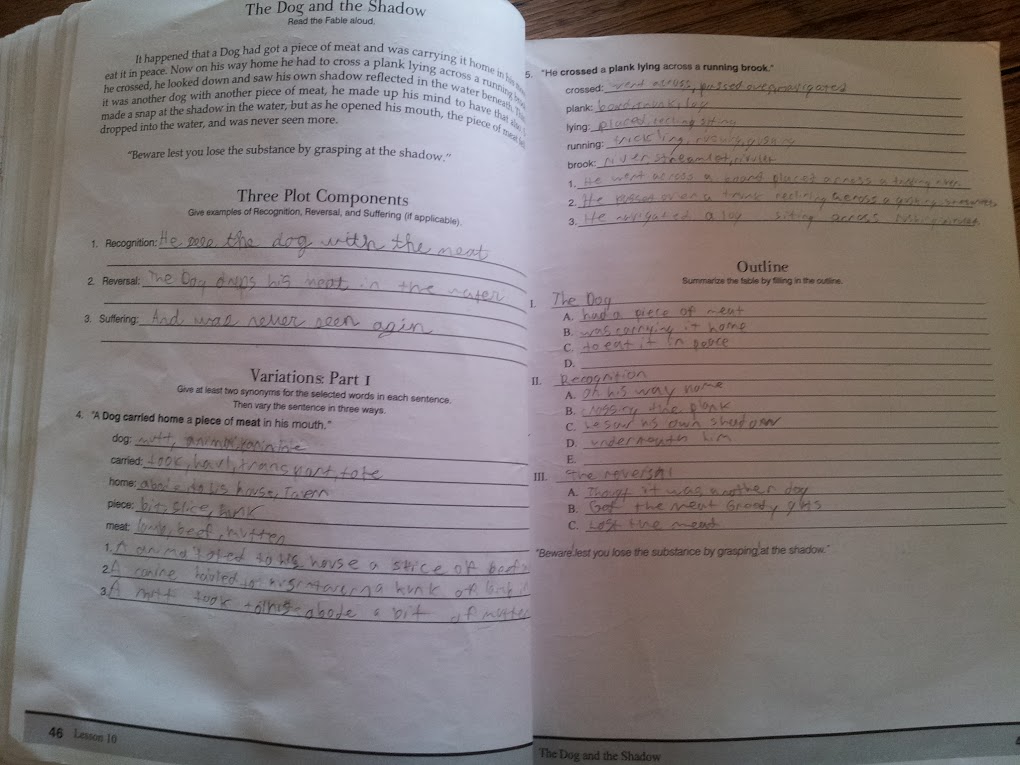 The Dog and the Shadow
Read the Fable aloud.
It happened that a Dog had got a piece of meat and was carrying it home in his
eat it in peace. Now on his way home he had to cross a plank lying across a running
he crossed, he looked down and saw his own shadow reflected in the water beneath.
it was another dog with another piece of meat, he made up his mind to have that also.
made a snap at the shadow in the water, but as he opened his mouth, the piece of meat
dropped into the water, and was never seen more.
"Beware lest you lose the substance by grasping at the shadow."
Three Plot Components
Give examples of Recognition, Reversal, and Suffering (if applicable).
1. Recognition: He sees the dog with the meat
2. Reversal: The Dog drops his meat in the water
3. Suffering: And was never seen agin
Variations: Part 1
Give at least two synonyms for the selected words in each sentence.
Then vary the sentence in three ways.
4. "A Dog carried home a piece of meat in his mouth."
dog: mutt, animal,
carried: took, haul, transport, tote
home: abode, to his house,
piece: bit, slice, hunk
meat: lamb, beef, mutten
1. A animal toted to his house a slice of beef
2. A canine to a hunk of
3. A mutt took to his abode a bit of mutten
46 Lesson 10
5. "He crossed a plank lying across a running brook."
crossed: went across, passed over, navigated
plank: board, trunk, log
lying: placed, siting
running: trickling,
brook: river, streamlet,
1. He went across a board placed across a
2. He passed over a trunk across a
3. He navigated a log siting across
Outline
Summarize the fable by filling in the outline.
I. The Dog
A. had a piece of meat
B. was carrying it home
C. to eat it in peace
D.
II. Recognition
A. on his way home
B. crossing the plank
C. he saw his own shadow
D. him
E.
III. the reversal
A. it was another dog
B. the meat
C. Lost the meat
"Beware lest you lose the substance by grasping at the shadow."
The Dog and the Shadow